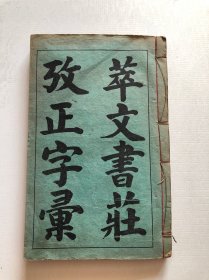 萃文書莊
攷正字彙